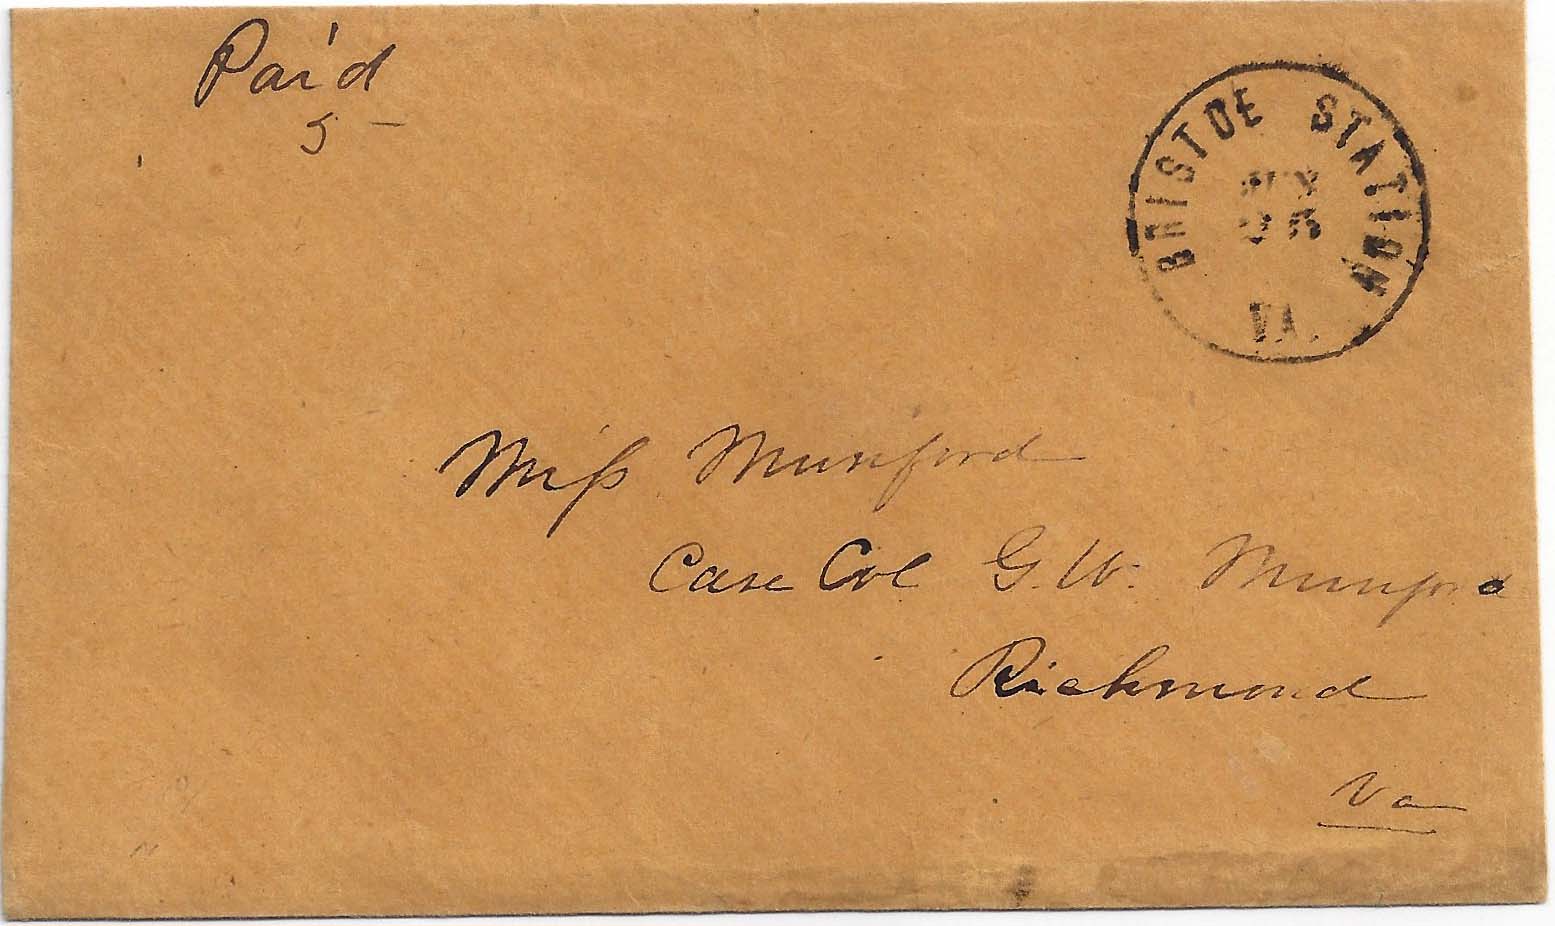 Paid
5
BRISTOE STATION
25
VA.
Miss Munford
Care Col G. W. Munford
Richmond
Va